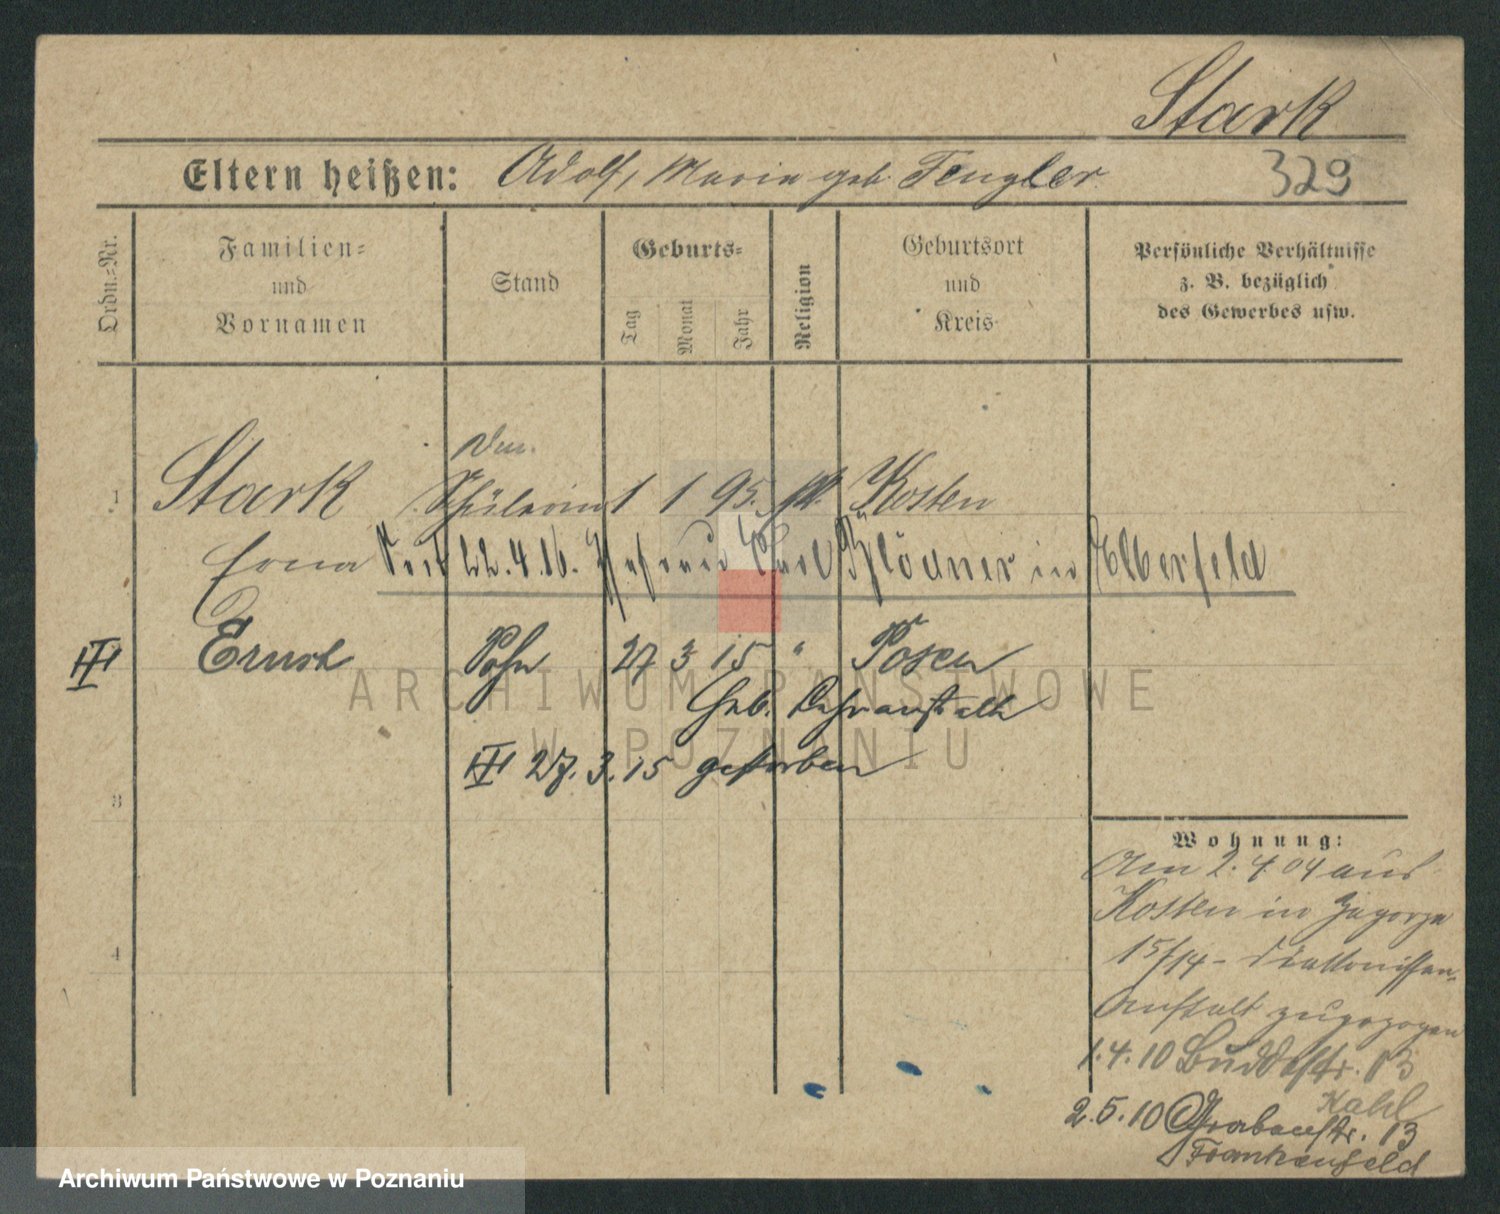 Stark
Eltern heißen: Adolf, Maria geb. Tengler
329
Ordn.=Nr.
Familien=
und
Vornamen
Stand
Geburts=
Tag Monat Jahr
Religion
Geburtsort
und
Kreis
Persönliche Verhältnisse
z. B. bezüglich
des Gewerbes usw.
1 Stark Schülerin 1 1 95. Kosten
Erna 22.4.16. Blödner in Elberfeld
Ernst Sohn 27 3 15 " Posen
Geb.
27.3.15 gestorben
3
4
Wohnung:
Am 2.4.04 aus
Kosten in Zagorze
15/14 - Diakonissen=
Anstalt zugezogen
1.4.10 Buddestr. 13
Kahl
2.5.10 Grabenstr. 13
Frankenfeld
ARCHIWUM PAŃSTWOWE
W POZNANIU
Archiwum Państwowe w Poznaniu